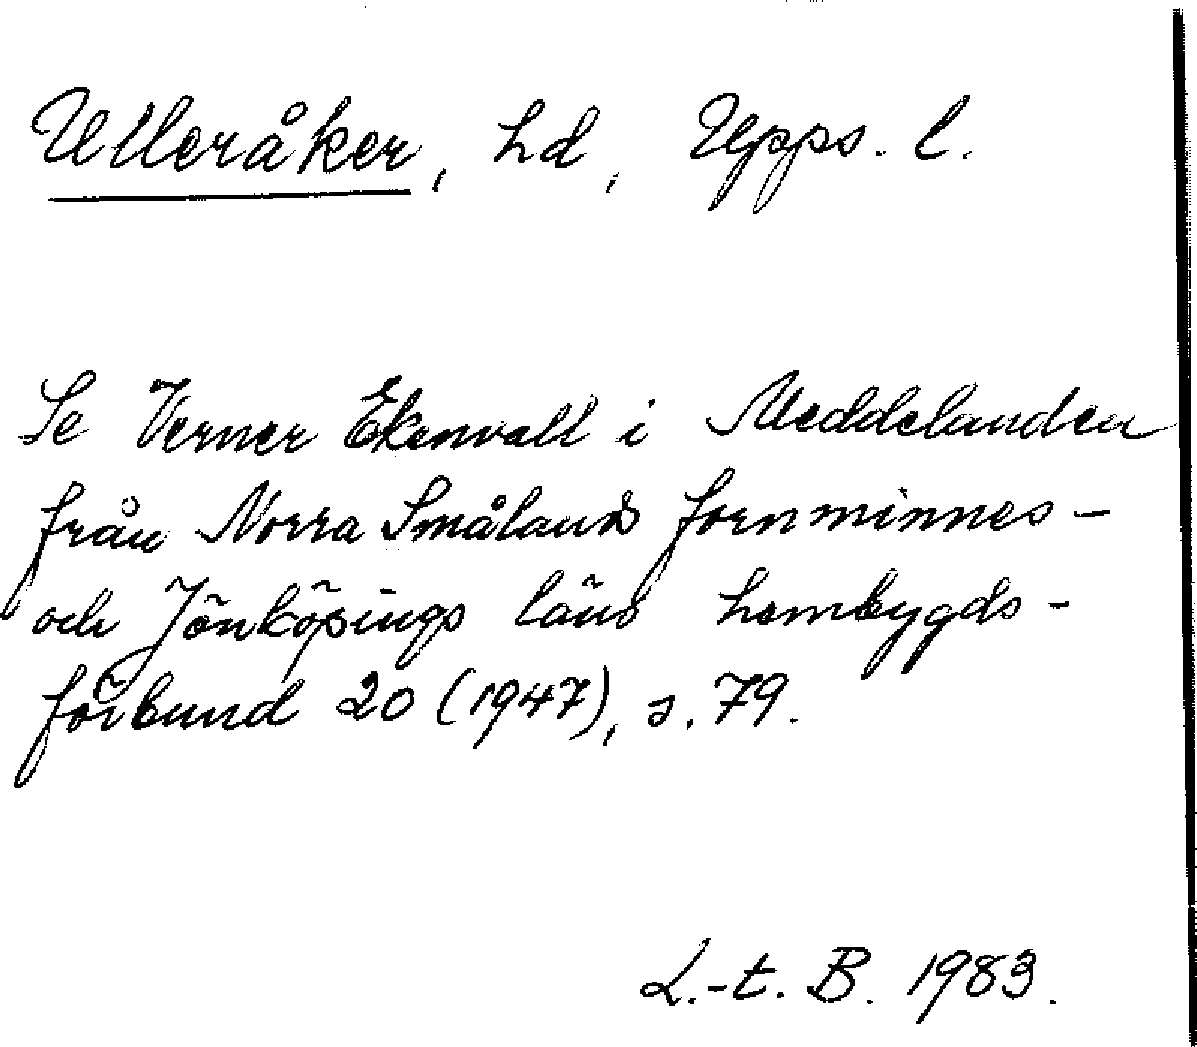 Ulleråker, hd, Upps. l.
Se Verner Ekenvall i Meddelanden
från Norra Smålands fornminnes-
och Jönköpings läns hembygds-
förbund 20 (1947), s. 79.
L.-t. B. 1983.